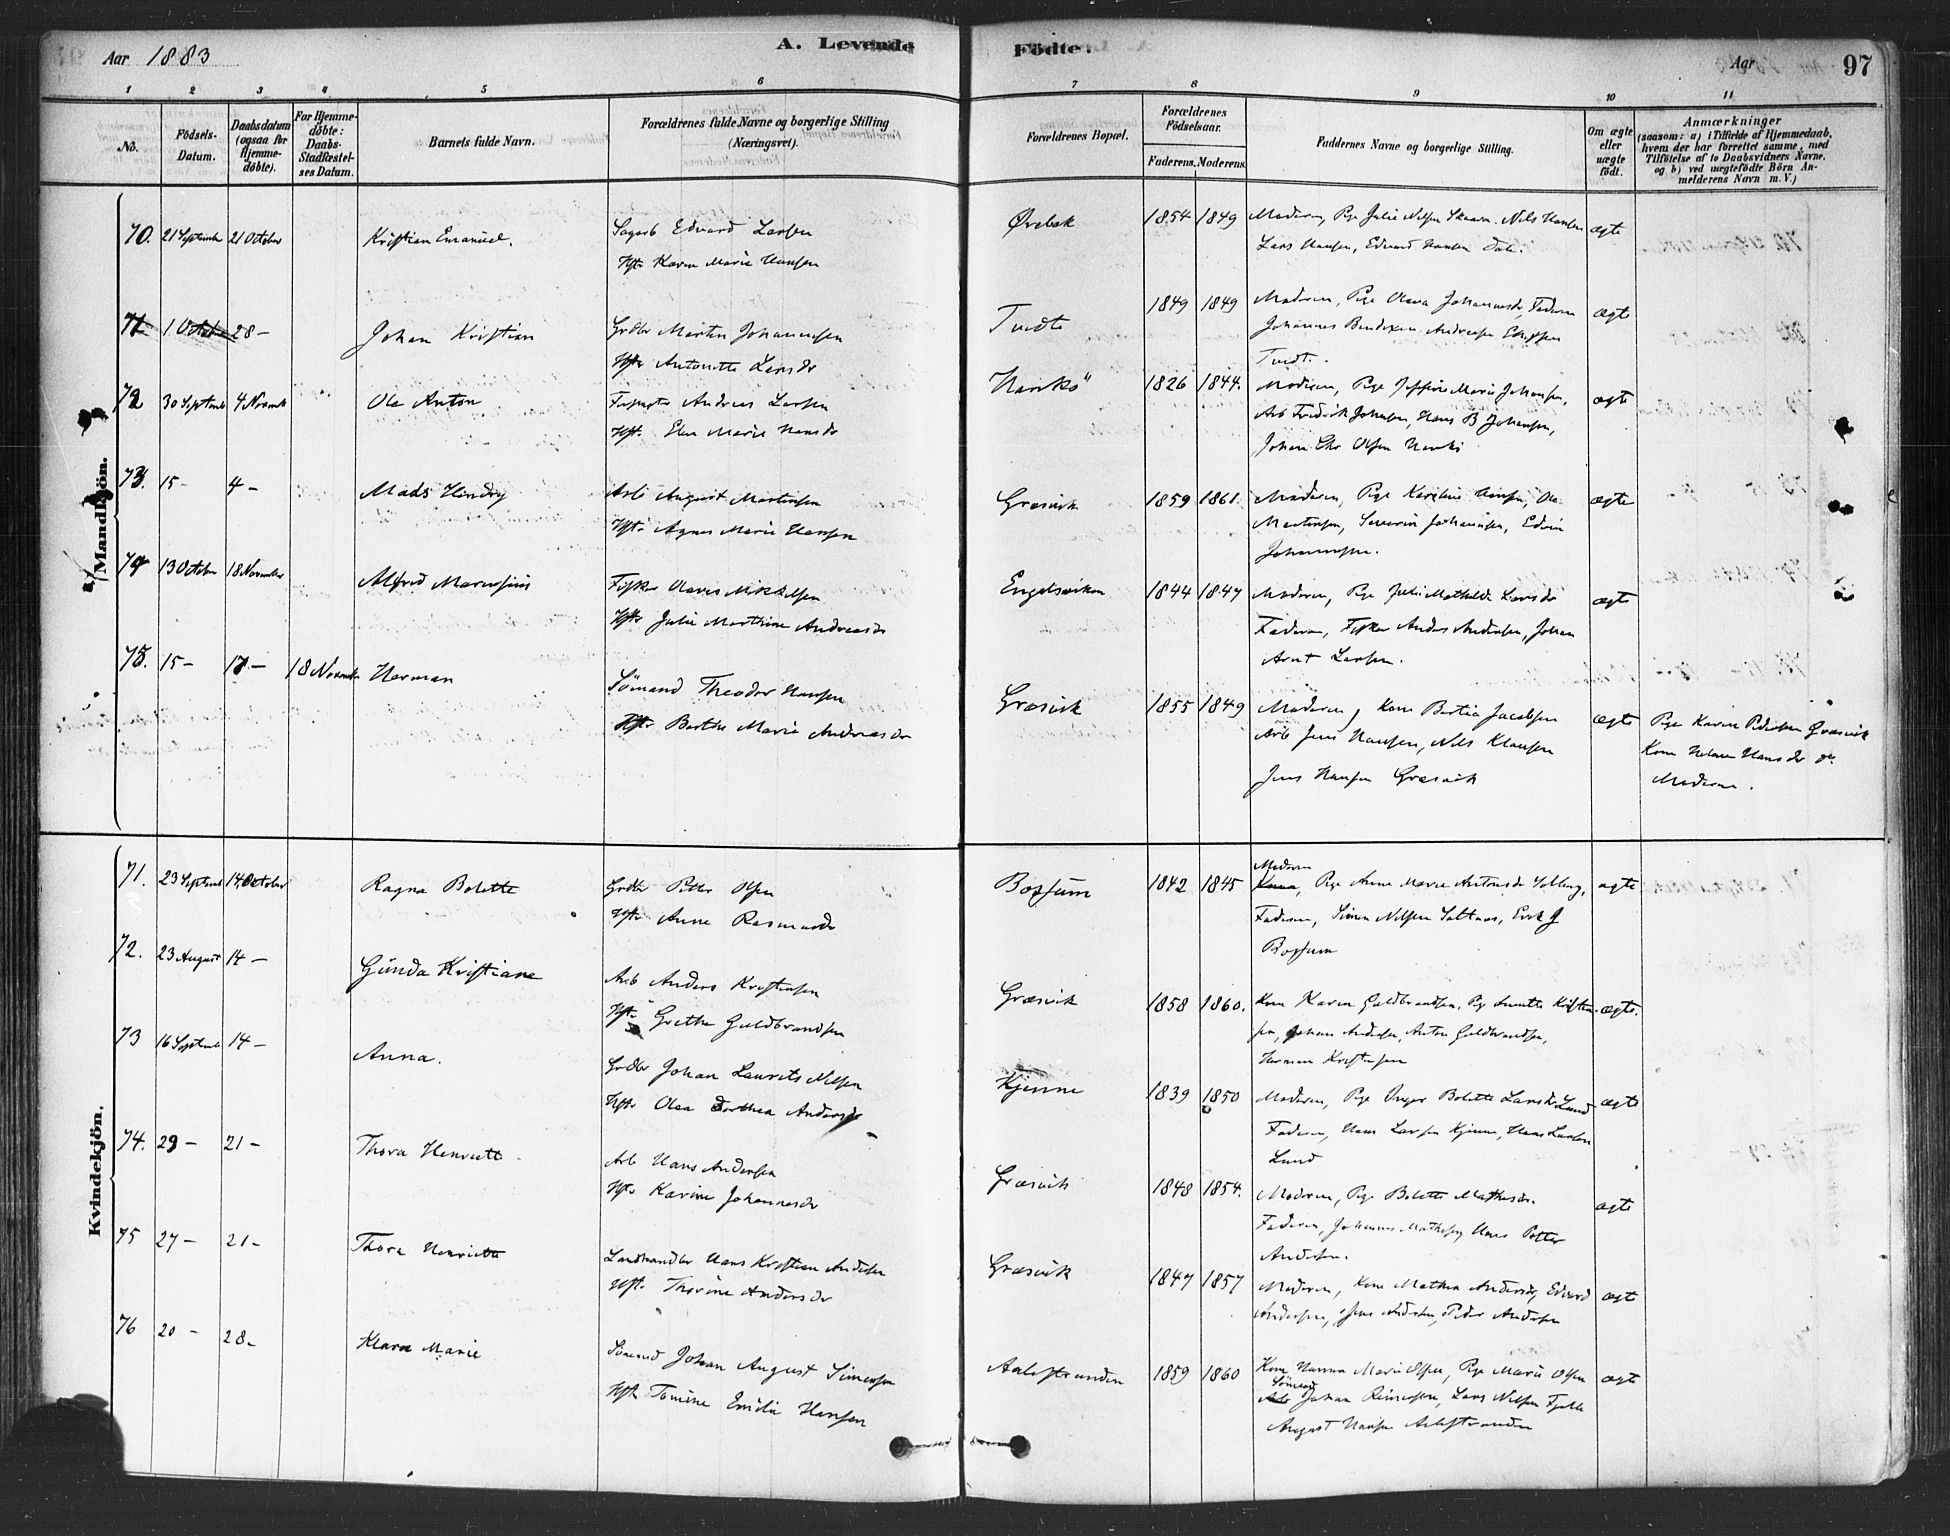 Aar 1883
A. Levende
Födte.
Aar
97
1 2 3 4 5 6 7 8 9 10 11
No.
Födsels-Datum.
Daabsdatum (ogsaa for Hjemme-döbte).
For Hjemme-döbte: Daabs-Stadfæstel-ses Datum.
Barnets fulde Navn.
Forældrenes fulde Navne og borgerlige Stilling (Næringsvei).
Forældrenes Bopæl.
Forældrenes Födselsaar.
Faderens. Moderens.
Faddernes Navne og borgerlige Stilling.
Om ægte eller uægte födt.
Anmærkninger (saasom: a) i Tilfælde af Hjemmedaab, hvem der har forrettet samme, med Tilföielse af to Daabsvidners Navne, og b) ved uægtefödte Börn An-melderens Navn m. V.)
Mandkjön.
70. 21 Septemb 21 October Kristian Emanuel. Sagarb Edvard Larsen
Hstr Karen Marie Hansen
Ørebek 1854 1849 Moderen, Pige Julie Nilsen Skaaren. Nils Hansen
Lars Hansen, Edvard Hansen Dale. ægte
71 1 October 28 – Johan Kristian Grdbr Martin Johannesen
Hstr Antonette Larsdr
Tvedte 1849 1849 Moderen, Pige Olava Johannesdr, Faderen
Johannes Bendixen, Andreas
Tvedt. ægte
72 30 Septemb 4 Novemb Ole Anton Andreas Larsen
Hstr. Elen Marie Hansdr
Hankö 1826 1844. Moderen, Pige Marie Johansen,
Arb Fredrik Johansen, Hans B Johansen,
Johan Chr Olsen Hankö ægte
73. 15 – 4 – Mads Hindry Arb August Martinsen
Hstr Agnes Marie Hansen
Græsvik 1859 1861. Moderen, Pige Karoline Hansen, Ole
Martinsen, Severin Johannesen, Edvin
Johannesen. ægte
74 13 October 18 November Alfred Marensius Fisker Olaves Mikkelsen
Hstr Julie Marthine Andreasdr
Engelsviken 1844 1847 Moderen, Pige Julie Mathilde Larsdr
Faderen, Fisker Anders Andersen, Johan
Arnt Larsen. ægte
75. 15 – 17 – 18 Novemb Herman Sömand Theodor Hansen
Hstr Berthe Marie Andreasdr
Græsvik 1855 1849 Moderen, Kone Bertia Jacobsen
Arb Jens Hansen, Nils Klausen
Jens Hansen Græsvik ægte
Pige Karen Pedersen Græsvik
Kone Helene Hansdr do
Moderen.
Kvindekjön.
71. 23 Septemb 14 October Ragna Bolette Grdbr Petter Olsen
Hstr Anne Rasmusdr
Borfum 1842 1845 Moderen
Kone, Pige Anne Marie Antonsdr Solberg,
Faderen, Simen Nilsen Saltnes, Erik J
Borfum ægte
72. 23 August 14 – Gunda Kristiane Arb Anders Kristensen
Hstr Grethe Guldbrandsen
Græsvik 1858 1860. Kone Karen Guldbrandsen, Pige Annette Kristen-
sen, Johan Andersen, Anton Guldbrandsen,
Herman Kristensen ægte.
73 16 Septemb 14 – Anna. Grdbr Johan Laurits Nilsen
Hstr Olea Dorthea Andersdr
Kjenne 1839 1850 Moderen, Pige Inger Bolette Larsdr Lund
Faderen, Hans Larsen Kjenne, Hans Larsen
Lund ægte
74. 29 – 21 – Thora Henriette Arb Hans Andersen
Hstr Karine Johannesdr
Græsvik 1848 1854. Moderen, Pige Bolette Mathisdr.
Faderen, Johannes Mathisen, Hans Petter
Andersen. ægte
75 27 – 21 – Thora Henriette Landhandler Hans Kristian Andersen
Hstr. Thorine Andersdr
Græsvik 1847 1857 Moderen, Kone Mathea Andersdr, Edvard
Andersen, Jens Andersen, Peder Andersen ægte
76 20 – 28 – Klara Marie Sömand Johan August Simensen
Hstr Tomine Emilie Hansen
Aalestranden 1859 1860 Kone Hanna Marie Olsen, Pige Marie Olsen
Sömand
Arb Johan Reinertsen, Lars Nilsen Fjelle
August Hansen Aalestranden ægte